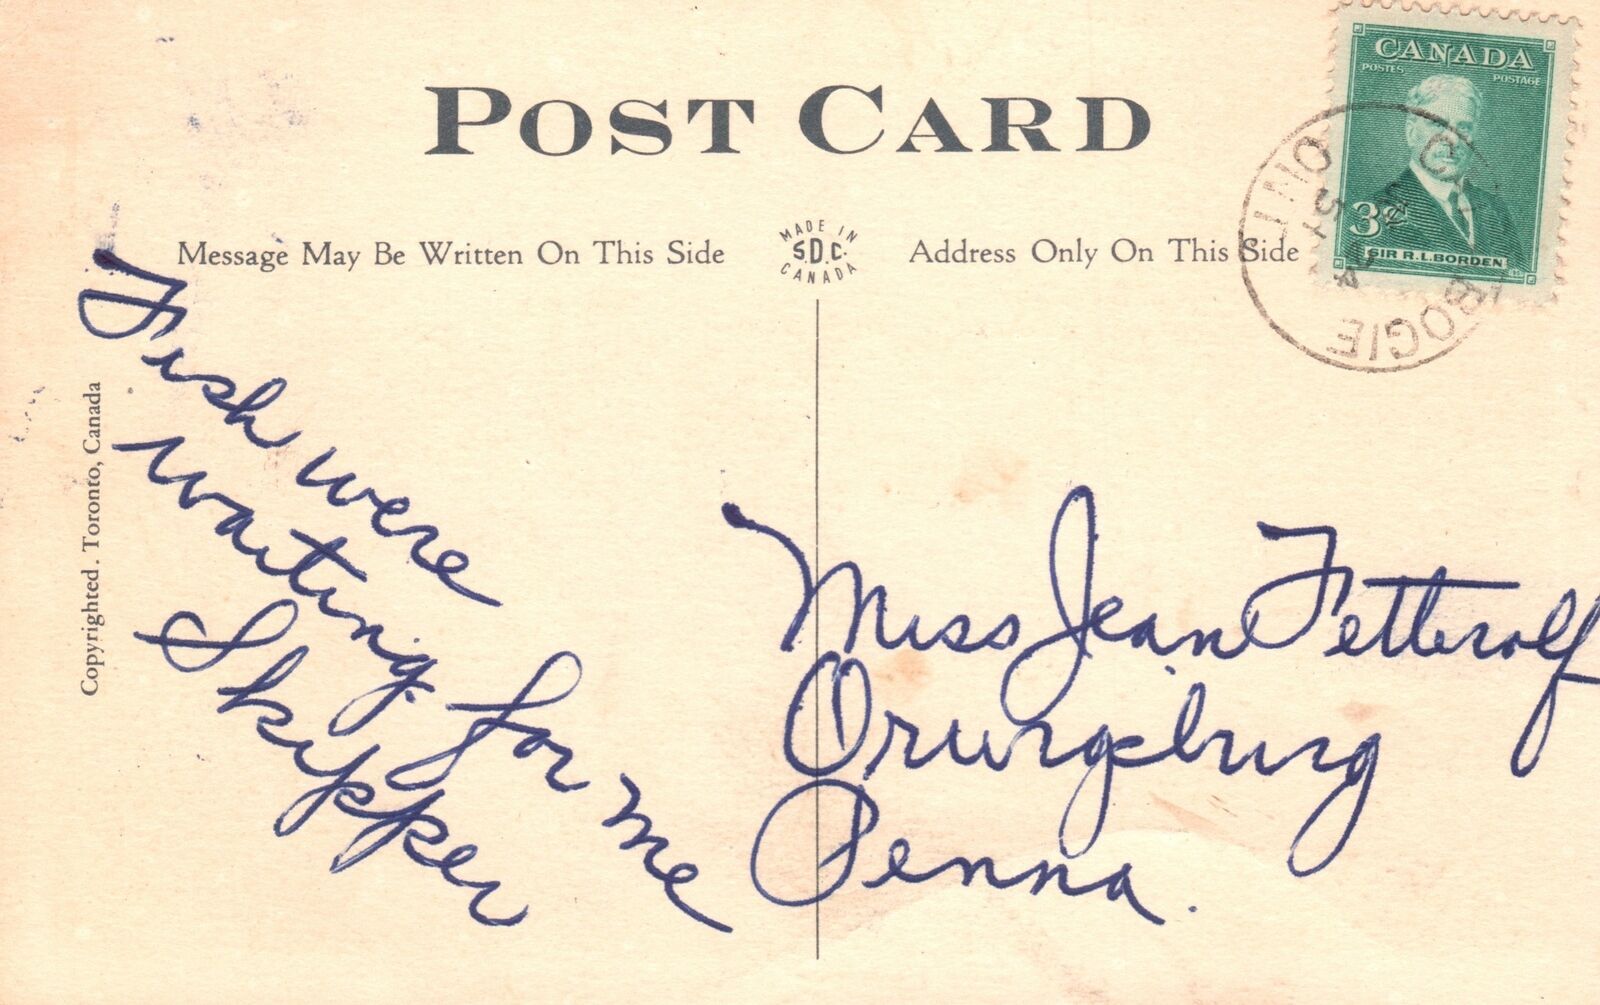 POST CARD
Message May Be Written On This Side
MADE IN
S.D.C.
CANADA
Address Only On This Side
CANADA
POSTES
POSTAGE
3¢
SIR R.L. BORDEN
ONT
Copyrighted. Toronto, Canada
Fish were
waiting for me
Skipper
Miss Jean Fetterolf
Orwigsburg
Penna.